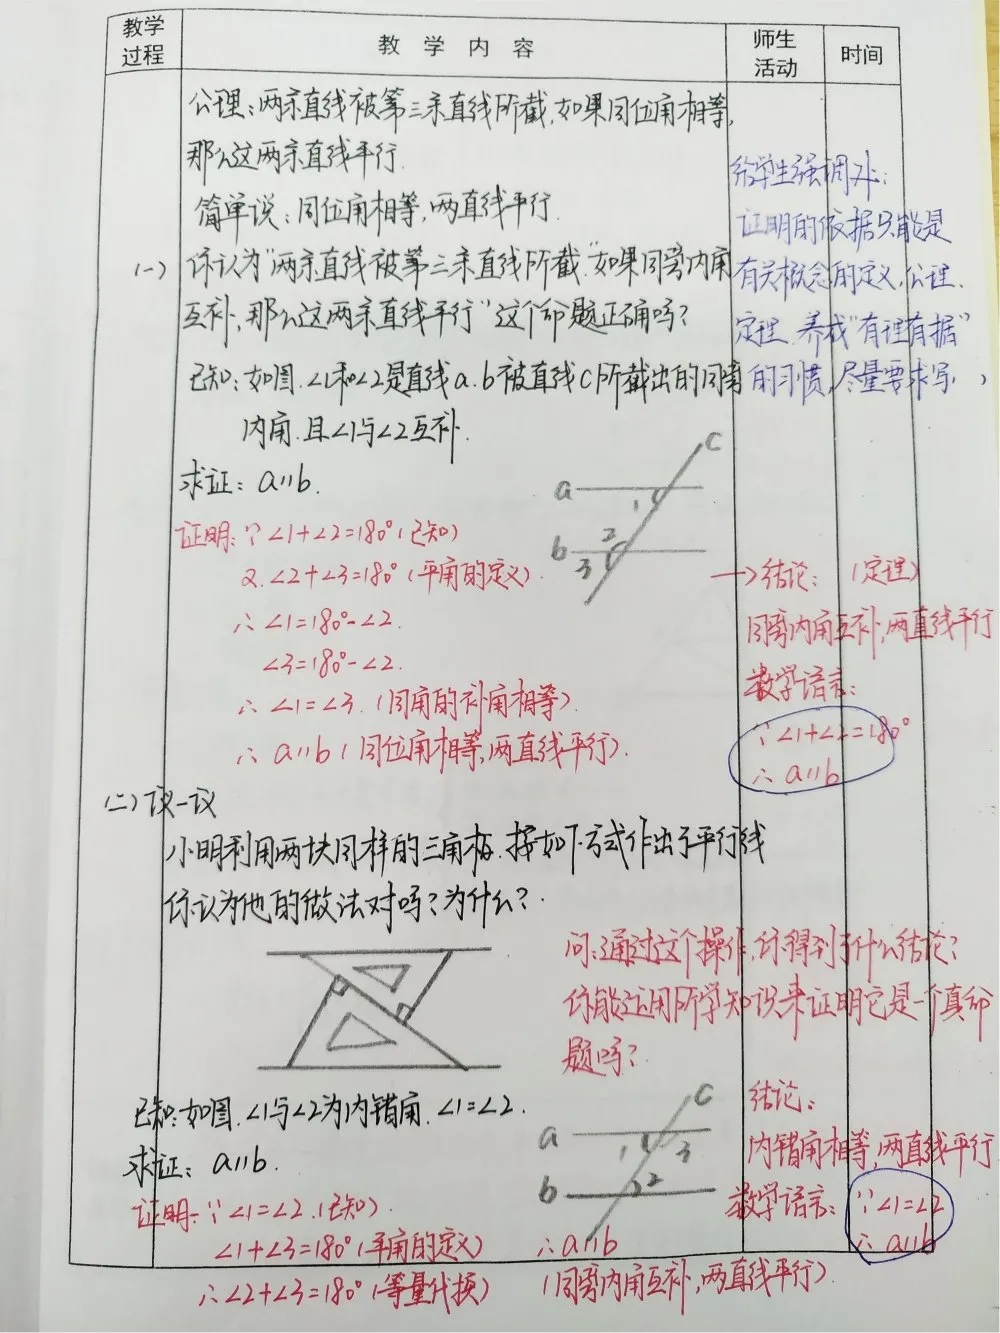 教学过程
教 学 内 容
师生活动
时间
公理:两条直线被第三条直线所截,如果同位角相等,
那么这两条直线平行.
简单说:同位角相等,两直线平行.
给学生强调才:
证明的依据只能是
有关概念的定义,公理.
定理.养成"有理有据"
的习惯,尽量要求写
(一) 你认为"两条直线被第三条直线所截"如果同旁内角
互补,那么这两条直线平行"这个命题正确吗?
已知:如图.∠1和∠2是直线a.b被直线C所截出的同旁
内角.且∠1与∠2互补.
求证:a//b.
C
a
1
b
2
3
证明:∵∠1+∠2=180°(已知)
又∠2+∠3=180°(平角的定义).
∴∠1=180°-∠2.
∠3=180°-∠2.
∴∠1=∠3.(同角的补角相等).
∴a//b(同位角相等,两直线平行).
→结论:(定理)
同旁内角互补,两直线平行
数学语言:
∵∠1+∠2=180°
∴a//b
(二)议一议
小明利用两块同样的三角板.按如下方式作出了平行线
你认为他的做法对吗?为什么?.
问:通过这个操作,你得到了什么结论?
你能运用所学知识来证明它是一个真命
题吗?
已知:如图.∠1与∠2为内错角.∠1=∠2.
求证:a//b.
C
a
1
3
b
2
证明:∵∠1=∠2.(已知).
∠1+∠3=180°(平角的定义)
∴∠2+∠3=180°(等量代换)
∴a//b
(同旁内角互补,两直线平行).
结论:
内错角相等,两直线平行
数学语言:∵∠1=∠2
∴a//b